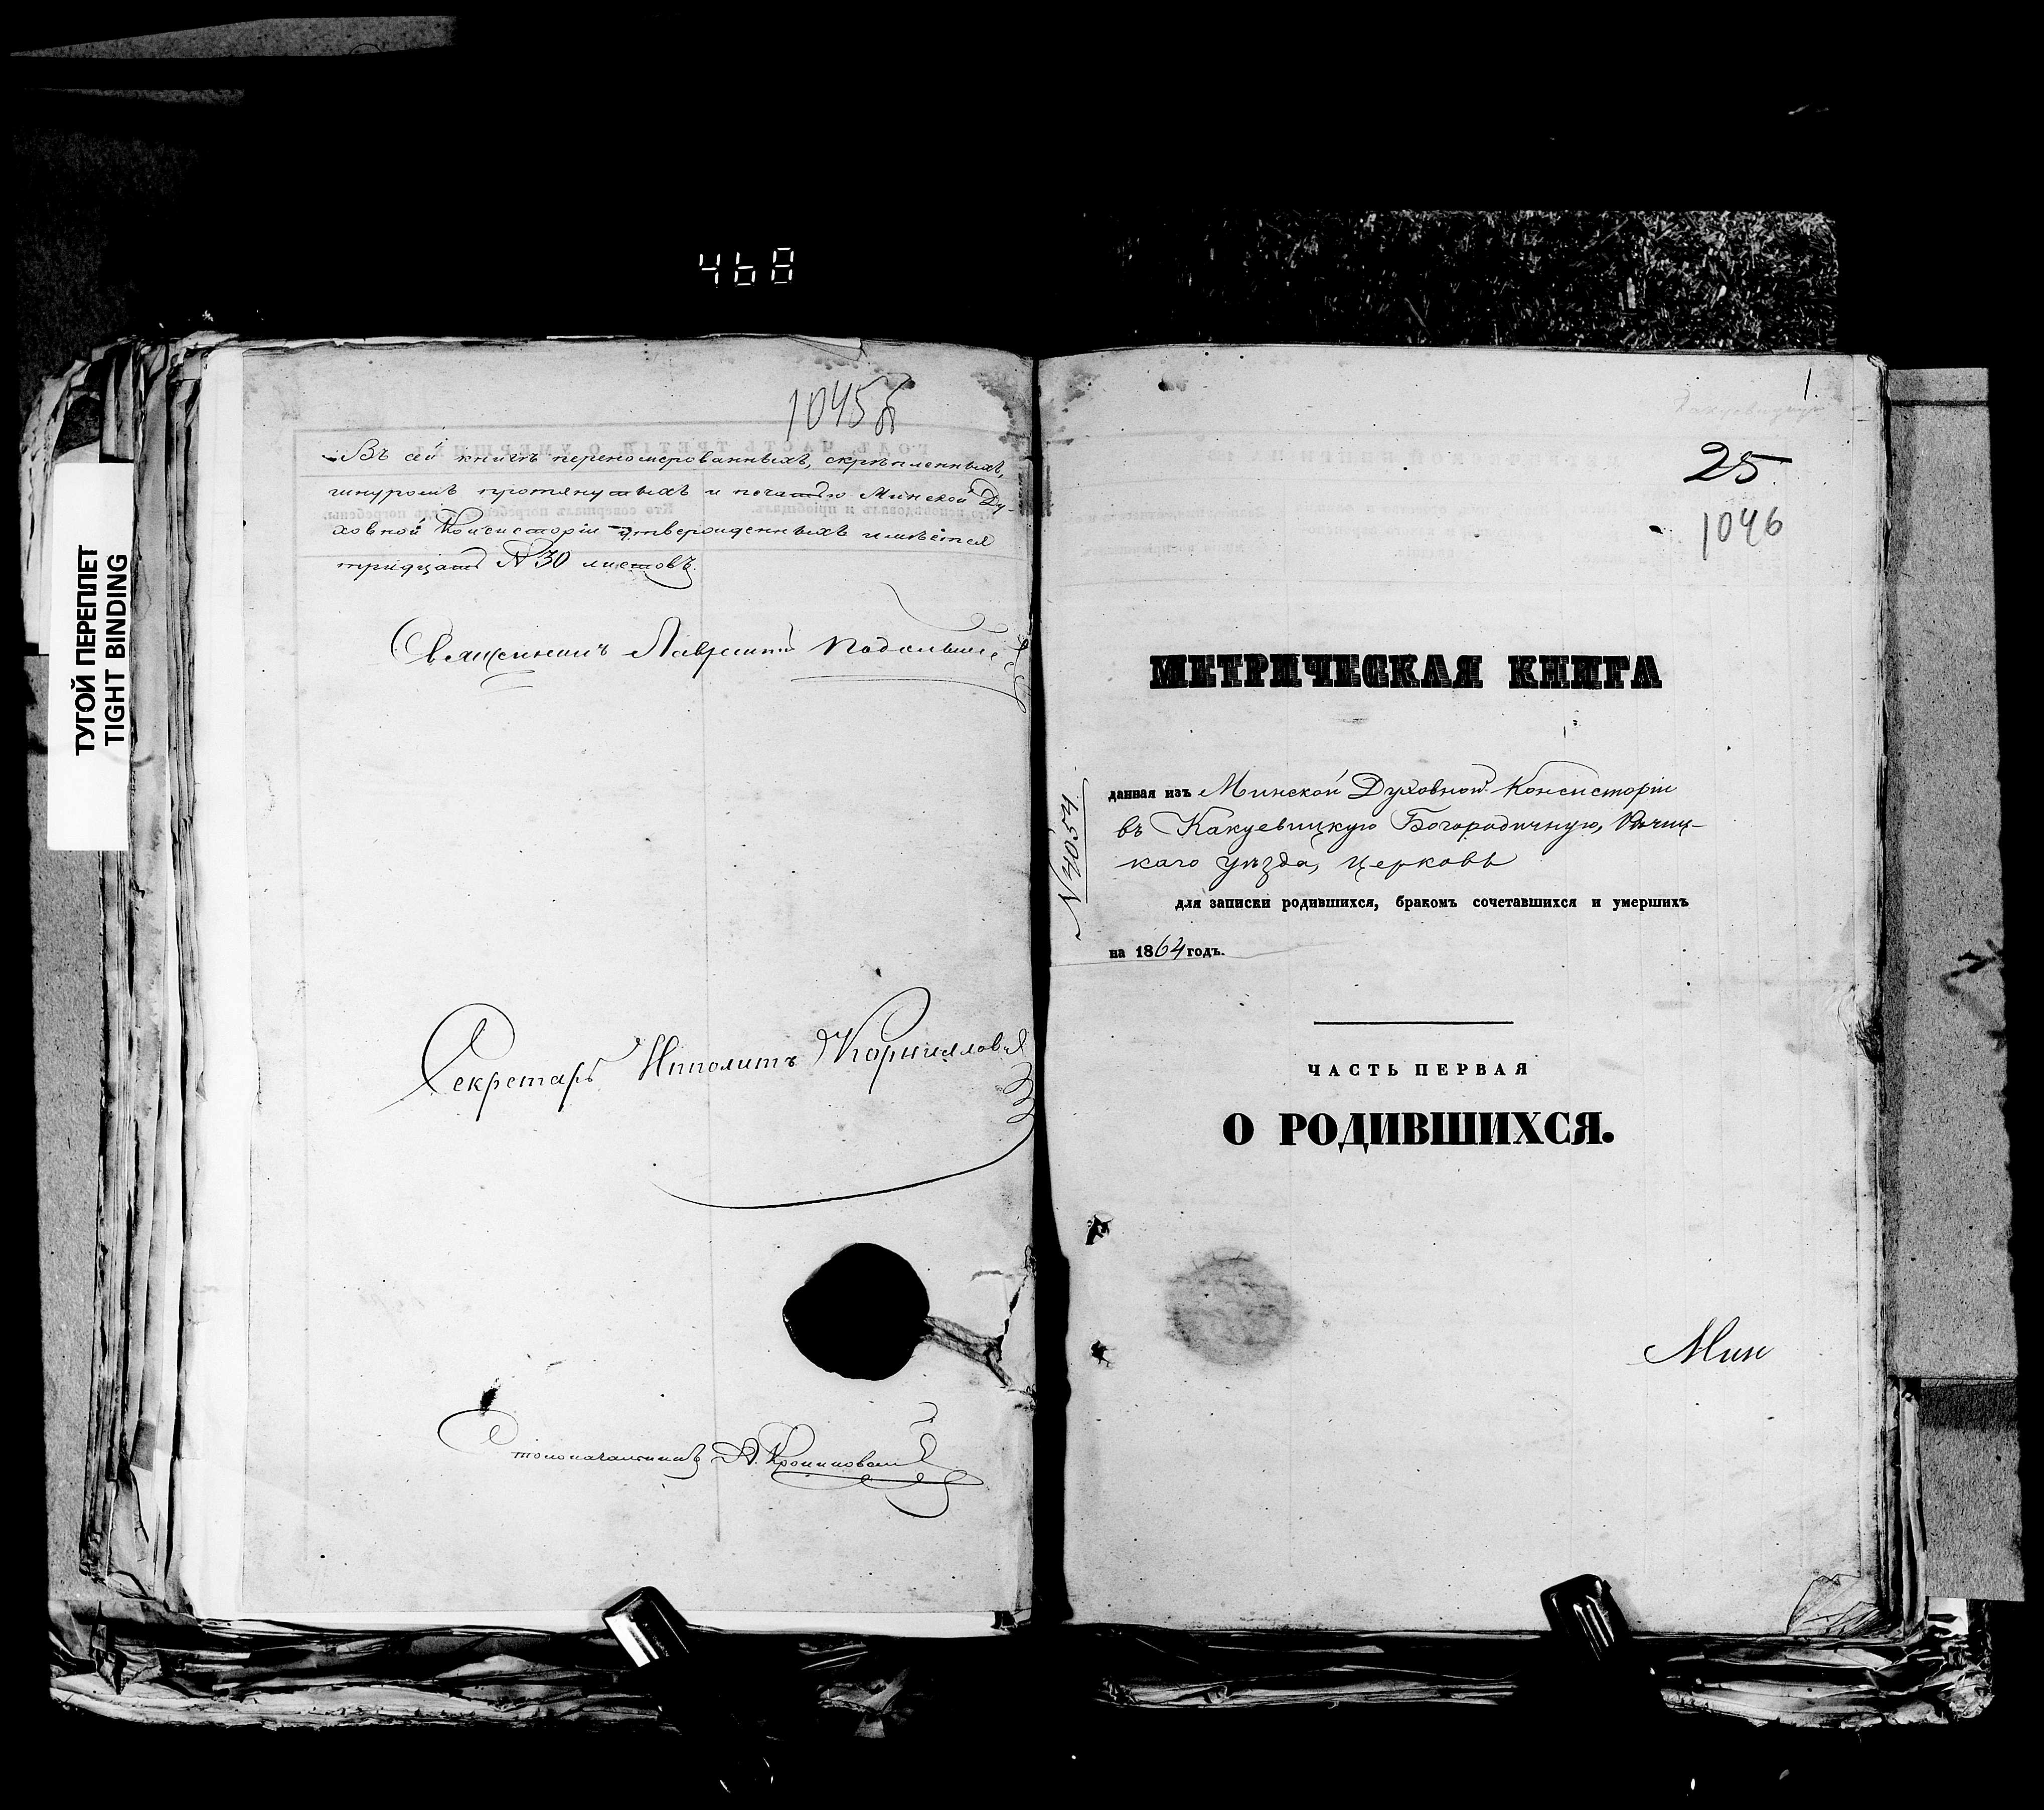 468
ТУГОЙ ПЕРЕПЛЕТ
TIGHT BINDING
1045б
Въ сей книгѣ перенумерованныхъ, скрѣпленныхъ,
шнуромъ протянутыхъ и печатью Минской Ду-
ховной Консисторіи утвержденныхъ имѣется
тридцать N 30 листовъ.
Священникъ Лаврентій
Секретарь Ипполитъ
Столоначальникъ
1.
25
1046
МЕТРИЧЕСКАЯ КНИГА
N 4054
данная изъ Минской Духовной Консисторіи
въ Какуевицкую Богородичную, Рѣчиц-
каго уѣзда, церковь
для записки родившихся, бракомъ сочетавшихся и умершихъ
на 1864 годъ.
ЧАСТЬ ПЕРВАЯ
О РОДИВШИХСЯ.
Мин